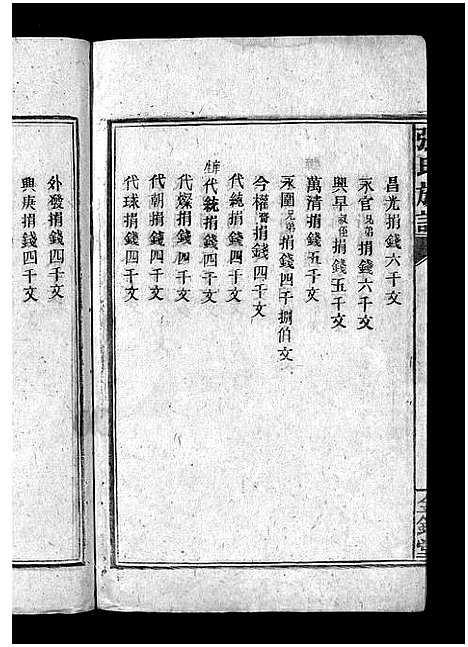 張氏族譜
金鑑堂
昌光捐錢六千文
永官兄弟捐錢六千文
興早叔侄捐錢五千文
萬清捐錢五千文
永圍兄弟捐錢四千捌伯文
今權捐錢四千文
代純捐錢四千文
代統捐錢四千文
代燦捐錢四千文
代朝捐錢四千文
代球捐錢四千文
外發捐錢四千文
興庚捐錢四千文